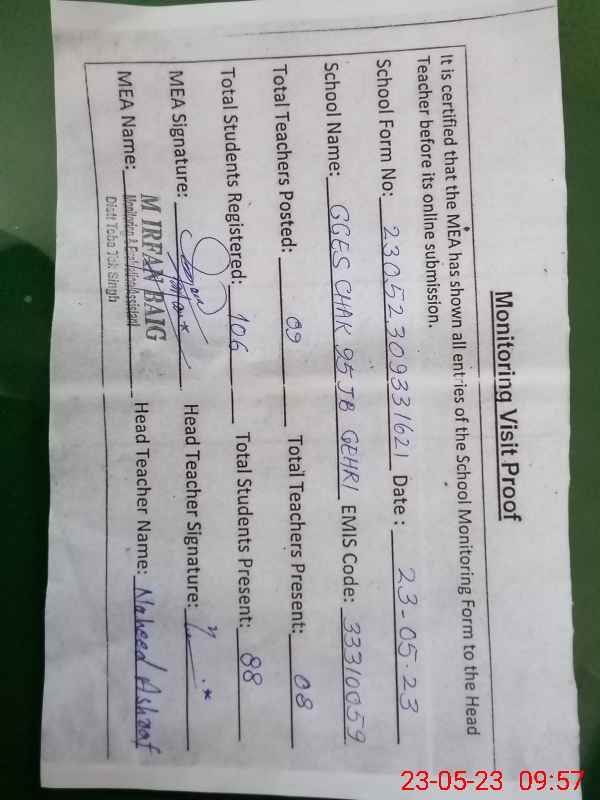 Monitoring Visit Proof
It is certified that the MEA has shown all entries of the School Monitoring Form to the Head
Teacher before its online submission.
School Form No: 23052309331621 Date : 23-05-23
School Name: GGES CHAK 95 JB GEHRI EMIS Code: 33310059
Total Teachers Posted: 09 Total Teachers Present: 08
Total Students Registered: 106 Total Students Present: 88
MEA Signature: Head Teacher Signature:
MEA Name: M IRFAN BAIG Head Teacher Name: Naheed Ashraf
Monitoring & Evaluation Assistant
Distt Toba Tek Singh
23-05-23 09:57